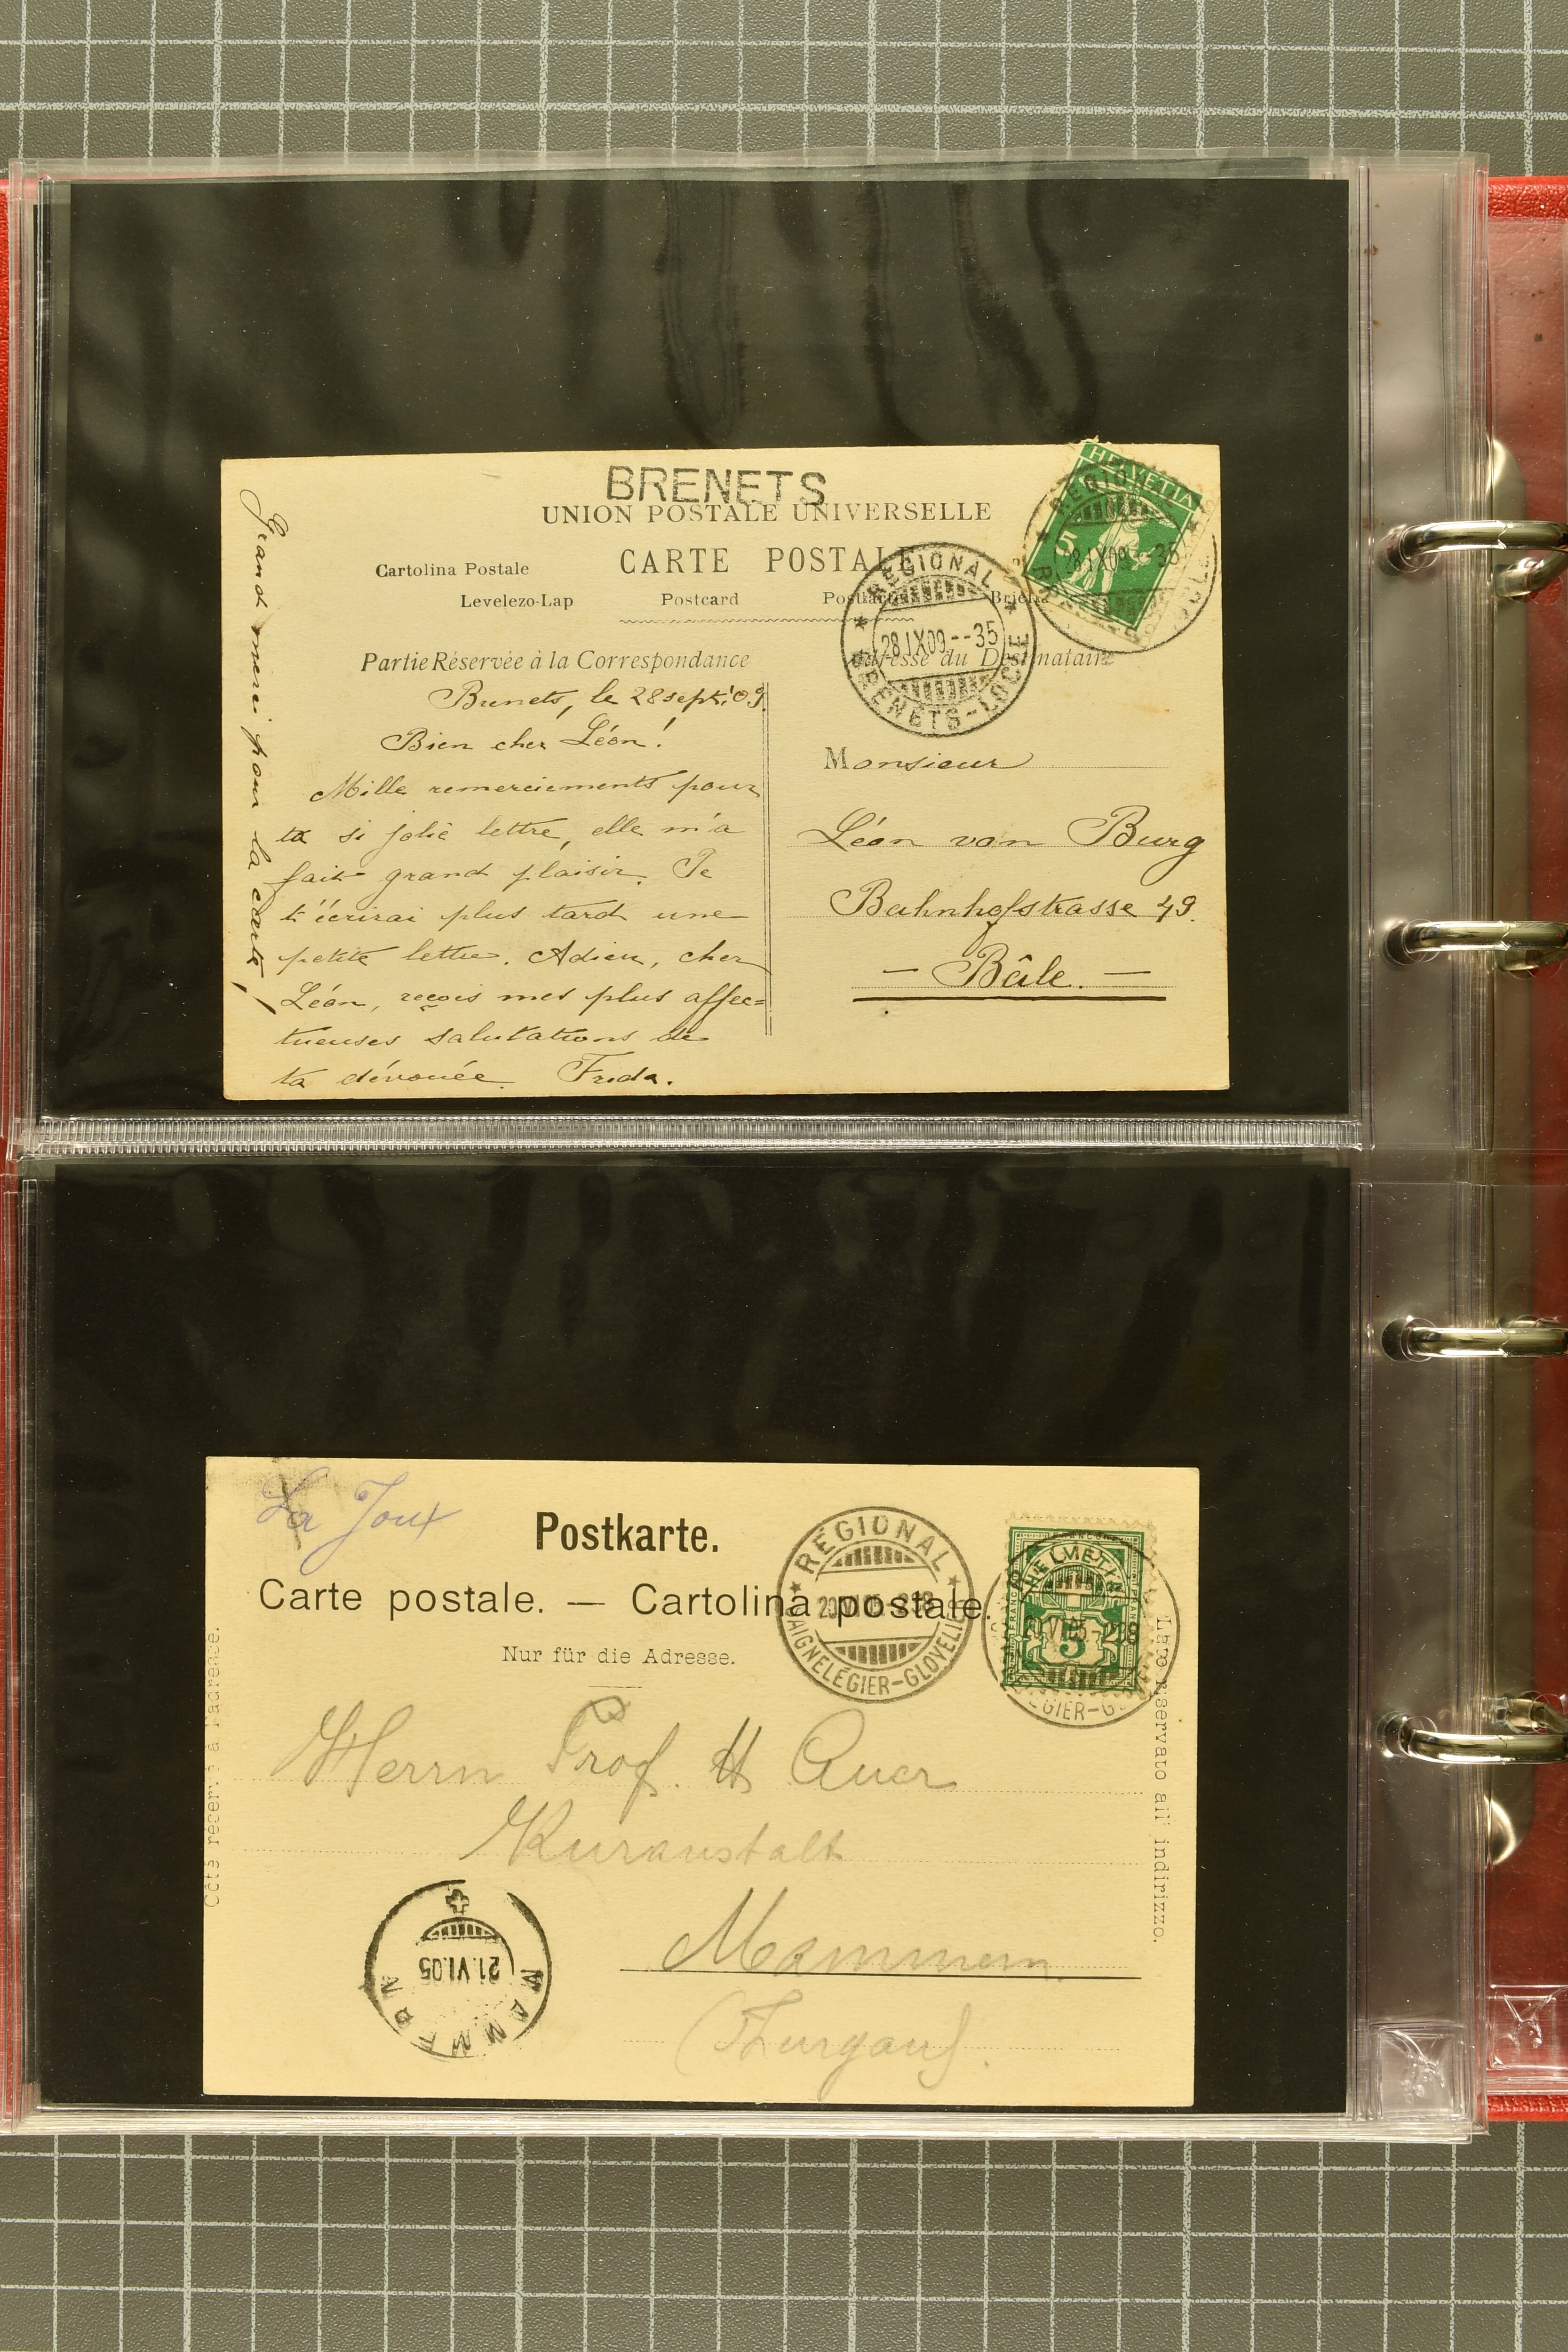 BRENETS
UNION POSTALE UNIVERSELLE
CARTE POSTALE
Cartolina Postale
Levelezo-Lap Postcard
HELVETIA
5
RÉGIONAL
28.IX09.--35
BRENETS-LOCLE
28.IX09.--35
Partie Réservée à la Correspondance
Adresse du Destinataire
Brenets, le 28 sept. 09.
Bien cher Léon!
Mille remerciements pour
ta si jolie lettre, elle m'a
fait grand plaisir. Je
t'écrirai plus tard une
petite lettre. Adieu, cher
Léon, reçois mes plus affec=
tueuses salutations de
ta dévouée Frida.
Grand merci pour la carte!
Monsieur
Léon von Burg
Bahnhofstrasse 49.
— Bâle. —
La Joux
Postkarte.
Carte postale. — Cartolina postale.
Nur für die Adresse.
RÉGIONAL
SAIGNELÉGIER-GLOVELIER
HELVETIA
5
20.VI.05
Côté réservé à l'adresse.
Lato riservato all' indirizzo.
Herrn Prof. H Auer
Kuranstalt
Mammern
(Thurgau).
MAMMERN
21.VI.05